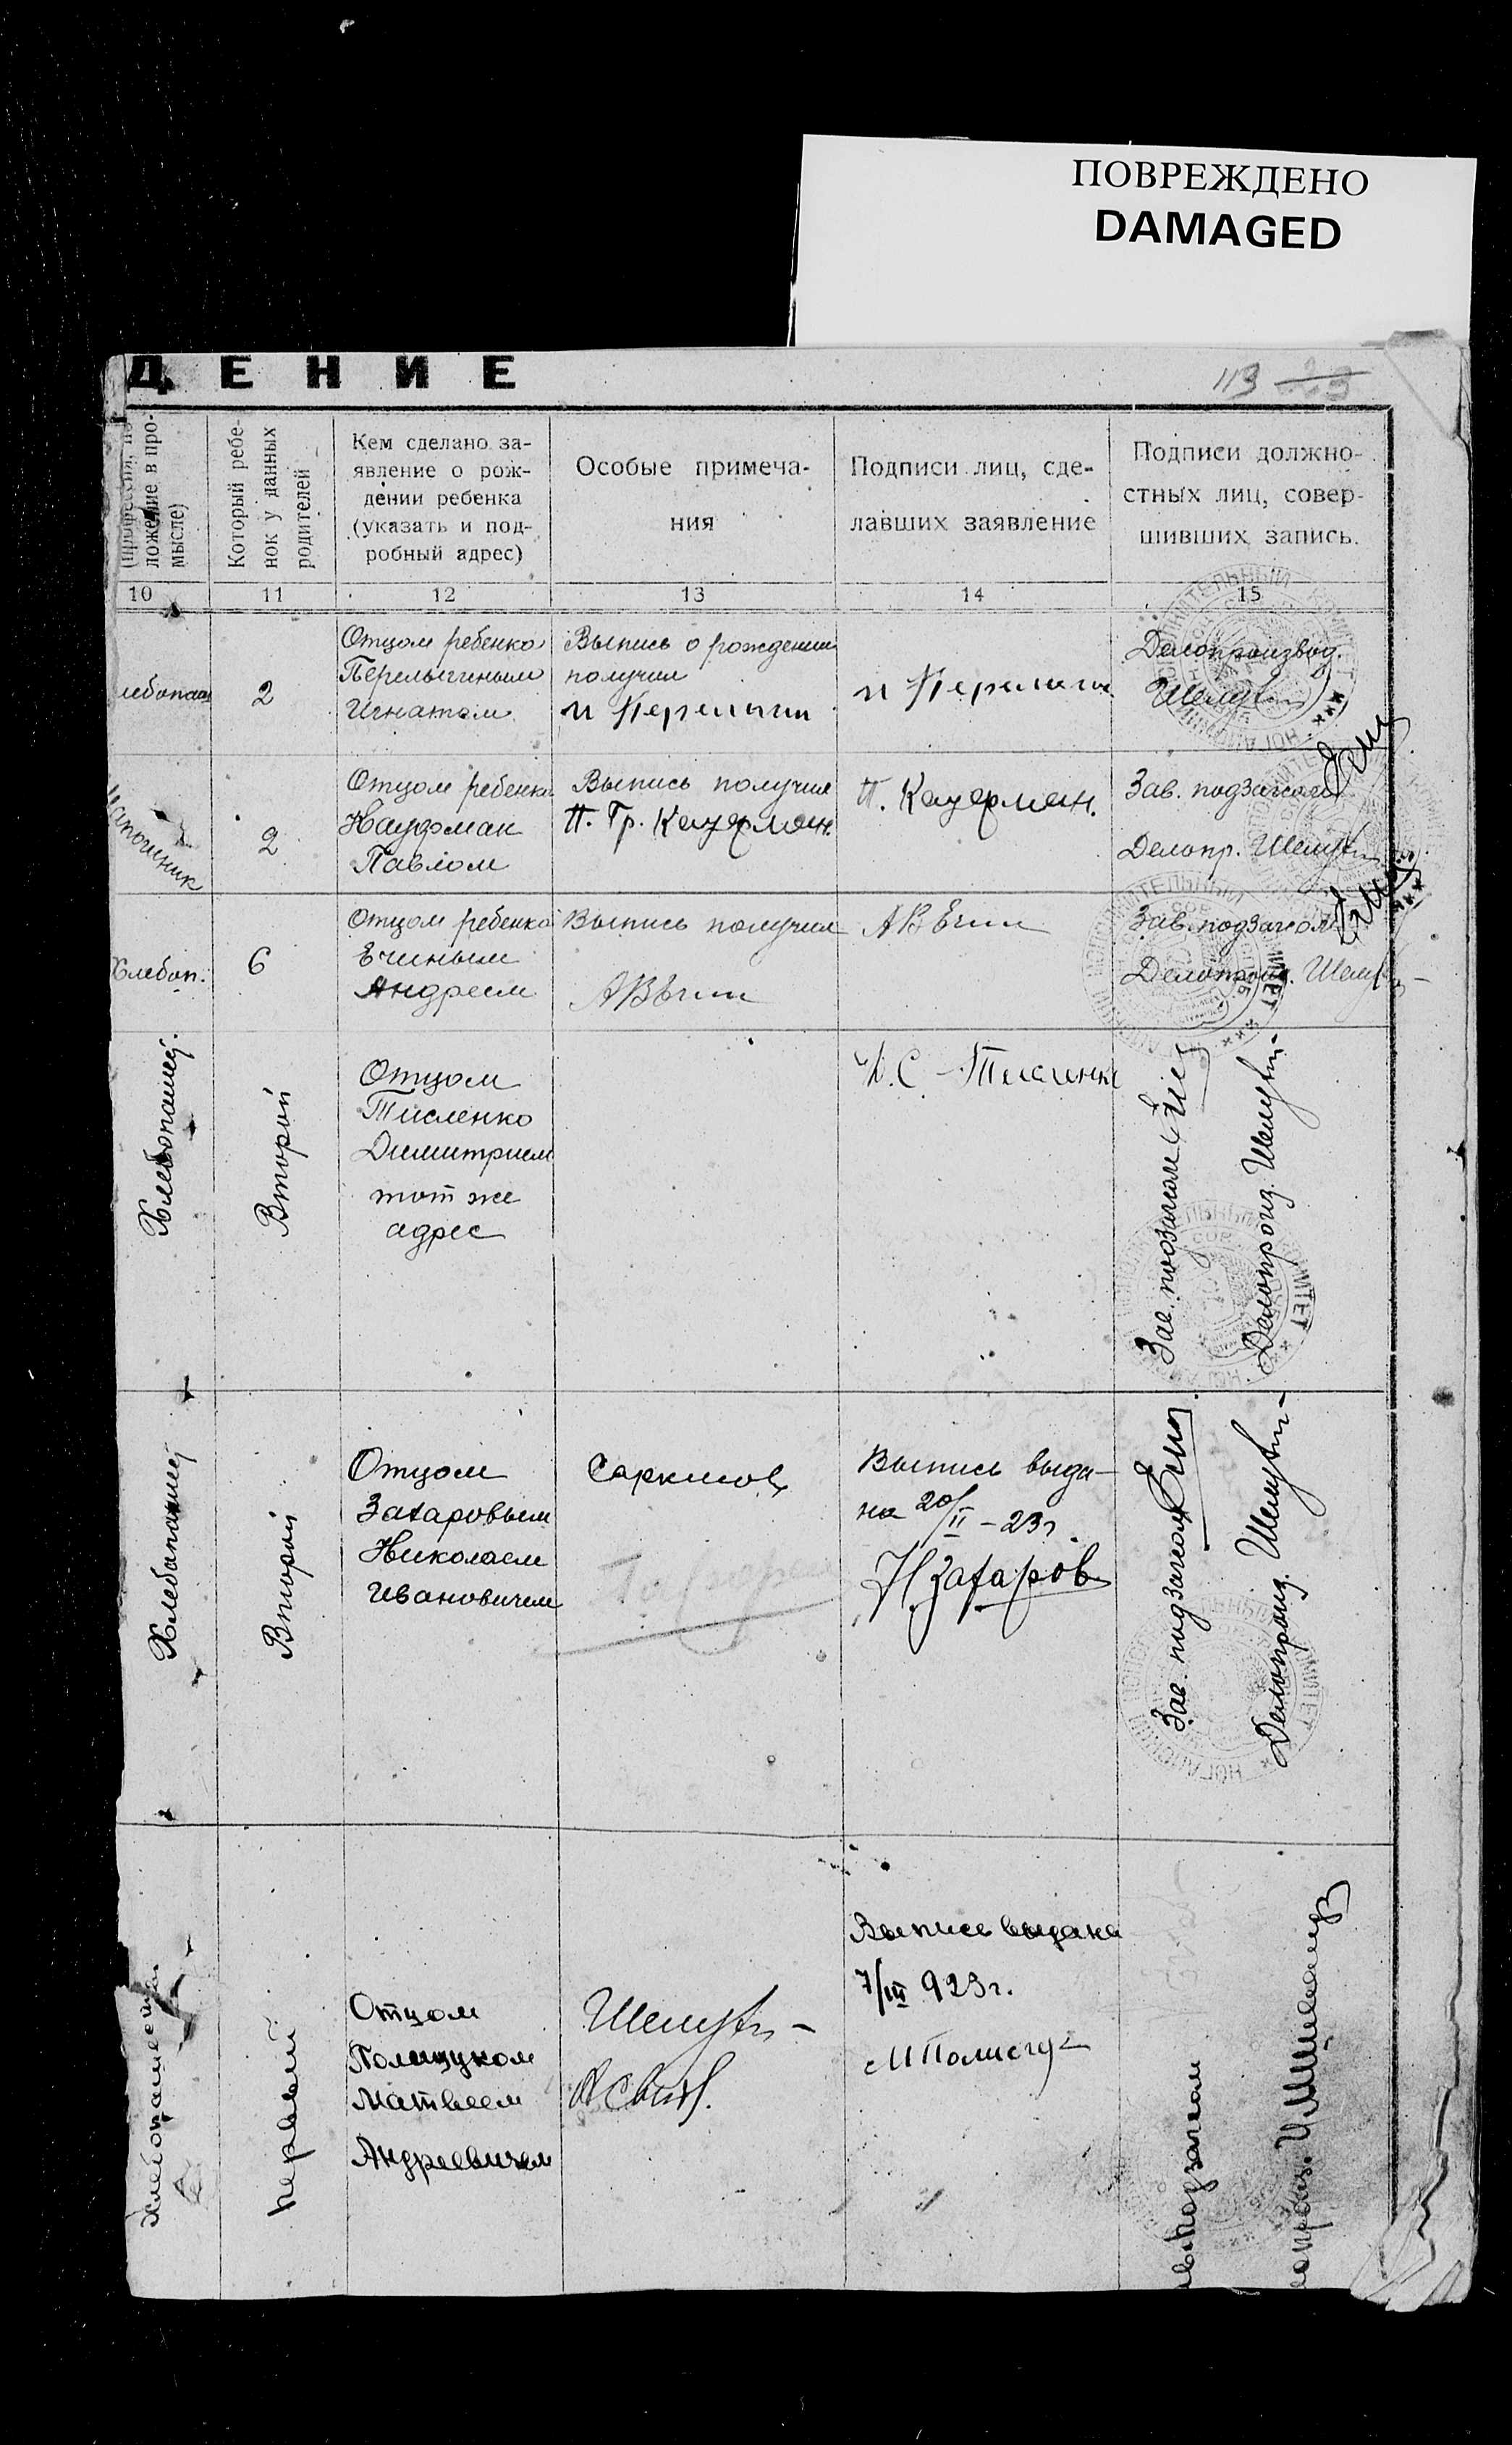 ПОВРЕЖДЕНО
DAMAGED
ДЕНИЕ
113 23
ложение в про-
мысле)
Который ребе-
нок у данных
родителей
Кем сделано за-
явление о рож-
дении ребенка
(указать и под-
робный адрес)
Особые примеча-
ния
Подписи лиц, сде-
лавших заявление
Подписи должно-
стных лиц, совер-
шивших запись.
10 11 12 13 14 15
2
Отцом ребенка
Перелыгиным
Игнатом
Выпись о рождении
получил
И Перелыгин
И Перелыгин
Делопроизвод.
2
Отцом ребенка
Кауфман
Павлом
Выпись получил
П. Гр. Кауфман.
П. Кауфман.
Зав. подзагсом
Делопр.
Хлебоп.
6
Отцом ребенка
Ечиным
Андреем
Выпись получил
АВ Ечин
АВ Ечин
Зав. подзагсом
Хлебопашец.
Второй
Отцом
Тисленко
Димитрием
тот же
адрес
Д. С. Тисленко
Зав. подзагсом
Делопроизд.
Хлебопашец
Второй
Отцом
Захаровым
Николаем
Ивановичем
Саркисов
Выпись выда-
на 20/II - 23г.
Н Захаров
Зав. подзагсом
Делопроизд.
первый
Отцом
Полищуком
Матвеем
Андреевичем
Выпись выдана
7/III 923г.
М Полищук
подзагсом